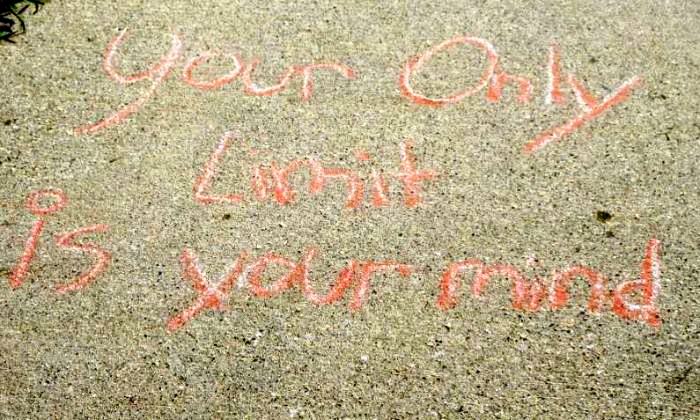 your Only
Limit
is your mind